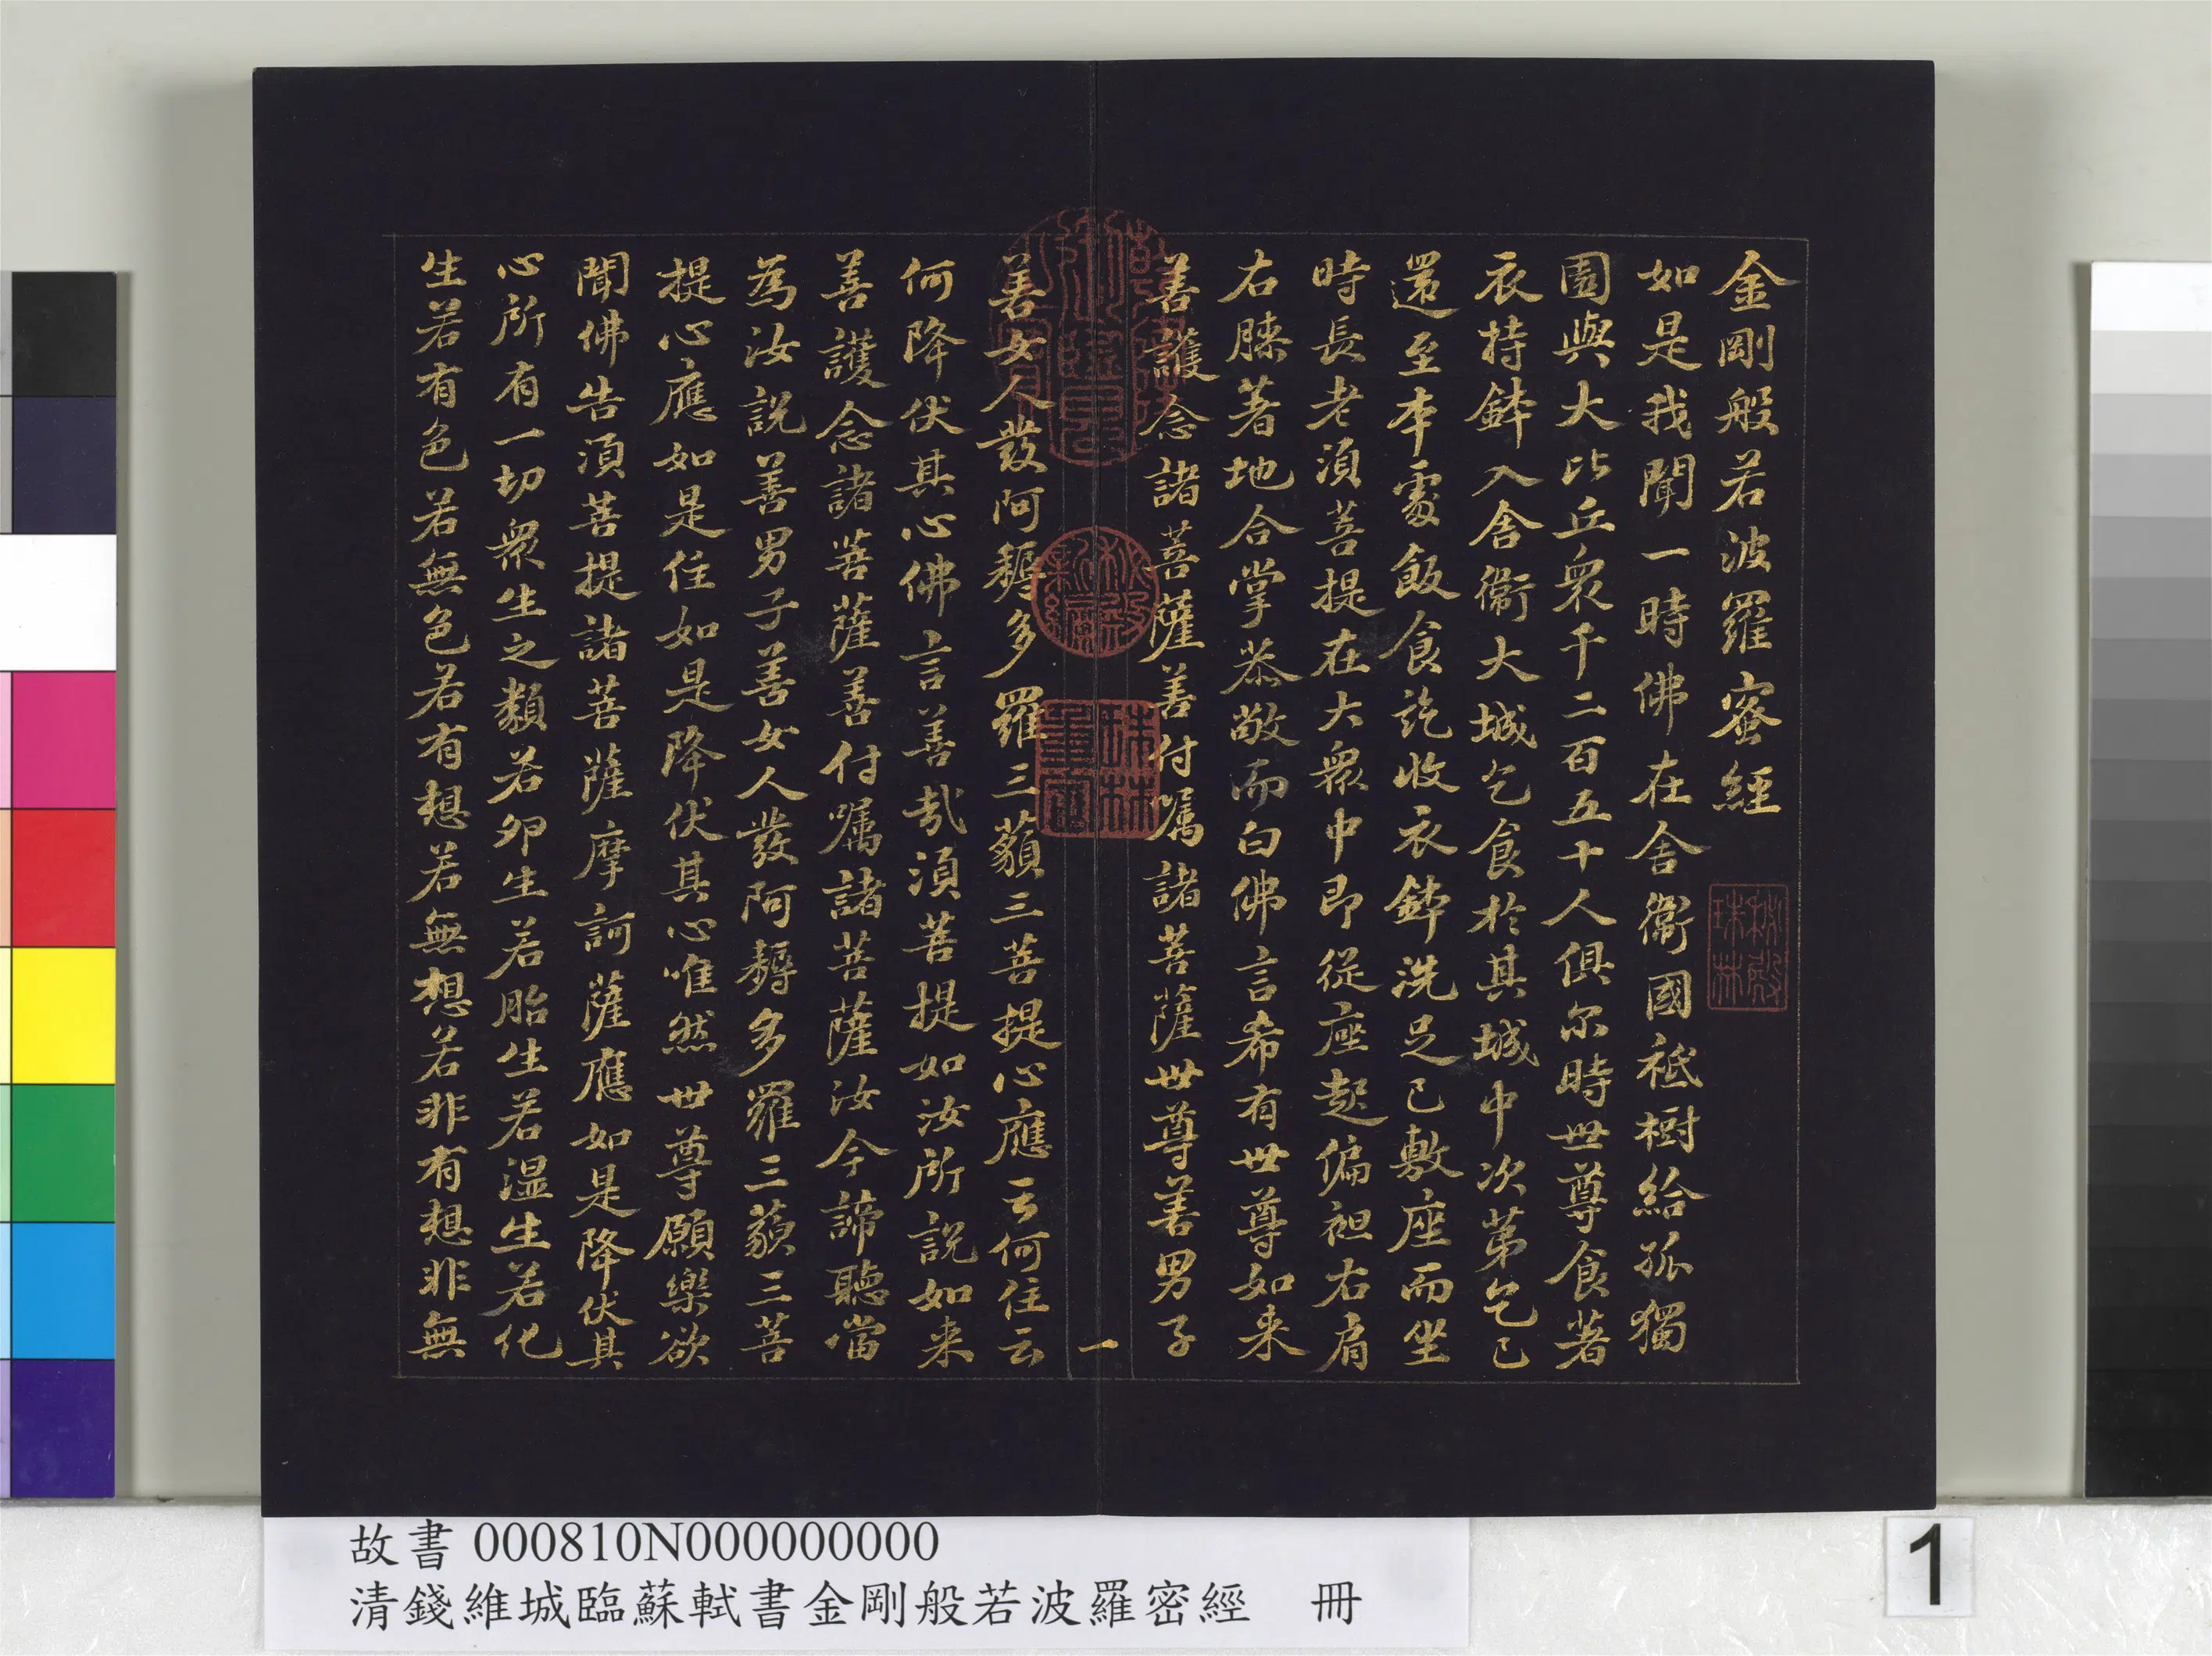 金剛般若波羅蜜經
如是我聞一時佛在舍衞國祇樹給孤獨
園與大比丘衆千二百五十人俱尔時世尊食著
衣持鉢入舍衞大城乞食於其城中次第乞已
還至本處飯食訖收衣鉢洗足已敷座而坐
時長老湏菩提在大衆中即從座起偏袒右肩
右膝著地合掌恭敬而白佛言希有世尊如来
善護念諸菩薩善付囑諸菩薩世尊善男子
一
善女人發阿耨多羅三藐三菩提心應云何住云
何降伏其心佛言善哉湏菩提如汝所說如来
善護念諸菩薩善付囑諸菩薩汝今諦聽當
為汝說善男子善女人發阿耨多羅三藐三菩
提心應如是住如是降伏其心唯然世尊願樂欲
聞佛告湏菩提諸菩薩摩訶薩應如是降伏其
心所有一切衆生之類若卵生若胎生若濕生若化
生若有色若無色若有想若無想若非有想非無
秘殿珠林
乾隆御覽之寶
秘殿新編
珠林重定
故書 000810N000000000
清錢維城臨蘇軾書金剛般若波羅密經 冊
1